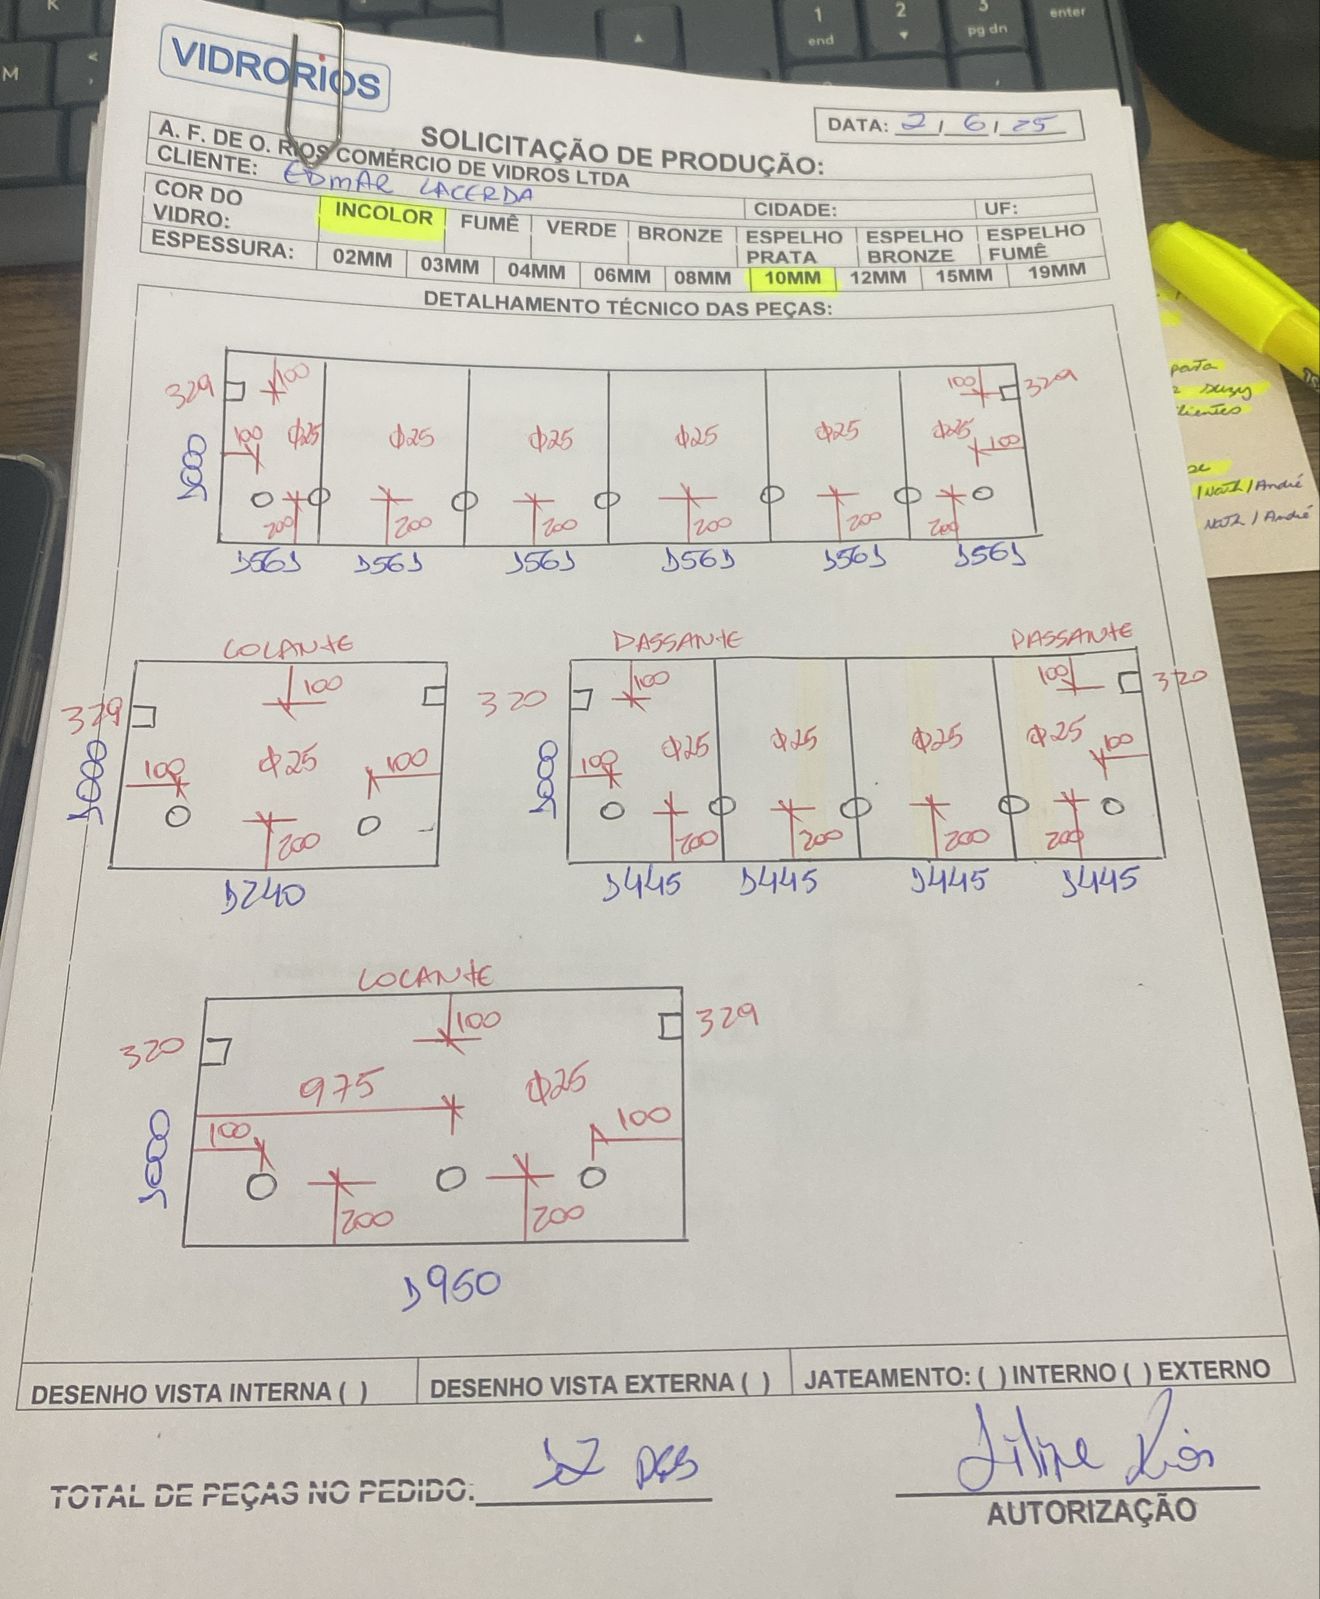 VIDRORIOS
DATA: 2/6/25
SOLICITAÇÃO DE PRODUÇÃO:
A. F. DE O. RIOS COMÉRCIO DE VIDROS LTDA
CLIENTE: EDMAR LACERDA
CIDADE: UF:
COR DO VIDRO: INCOLOR FUMÊ VERDE BRONZE ESPELHO PRATA ESPELHO BRONZE ESPELHO FUMÊ
ESPESSURA: 02MM 03MM 04MM 06MM 08MM 10MM 12MM 15MM 19MM
DETALHAMENTO TÉCNICO DAS PEÇAS:
329 100 100 329
100 Φ25 Φ25 Φ25 Φ25 Φ25 Φ25 100
1000
200 200 200 200 200 200
1561 1561 1561 1561 1561 1561
LOCANTE
100
329
100 Φ25 100
1000
200
1240
PASSANTE PASSANTE
320 100 100 320
100 Φ25 Φ25 Φ25 Φ25 100
1000
200 200 200 200
1445 1445 1445 1445
LOCANTE
320 100 329
975 Φ25
100 100
1000
200 200
1950
DESENHO VISTA INTERNA ( ) DESENHO VISTA EXTERNA ( ) JATEAMENTO: ( ) INTERNO ( ) EXTERNO
TOTAL DE PEÇAS NO PEDIDO: 12 PÇS
Filipe Rios
AUTORIZAÇÃO
1
end
2
3
pg dn
enter
K
M
pata
lientes
/ Nath / André
Nath / André